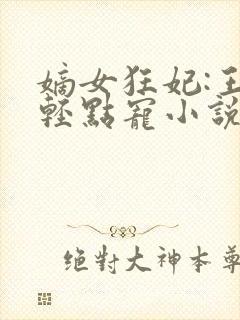 嫡女狂妃:王
輕點寵小說
絕對大神本尊